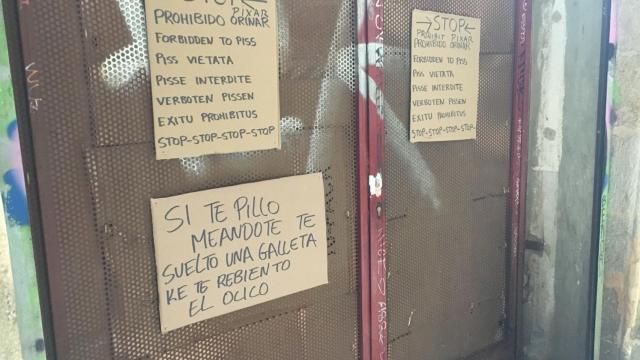 PIXAR
PROHIBIDO ORINAR
FORBIDDEN TO PISS
PISS VIETATA
PISSE INTERDITE
VERBOTEN PISSEN
EXITU PROHIBITUS
STOP-STOP-STOP-STOP
→STOP←
PROHIBIT PIXAR
PROHIBIDO ORINAR
FORBIDDEN TO PISS
PISS VIETATA
PISSE INTERDITE
VERBOTEN PISSEN
EXITU PROHIBITUS
STOP-STOP-STOP-STOP-
SI TE PILLO
MEANDOTE TE
SUELTO UNA GALLETA
KE TE REBIENTO
EL OCICO